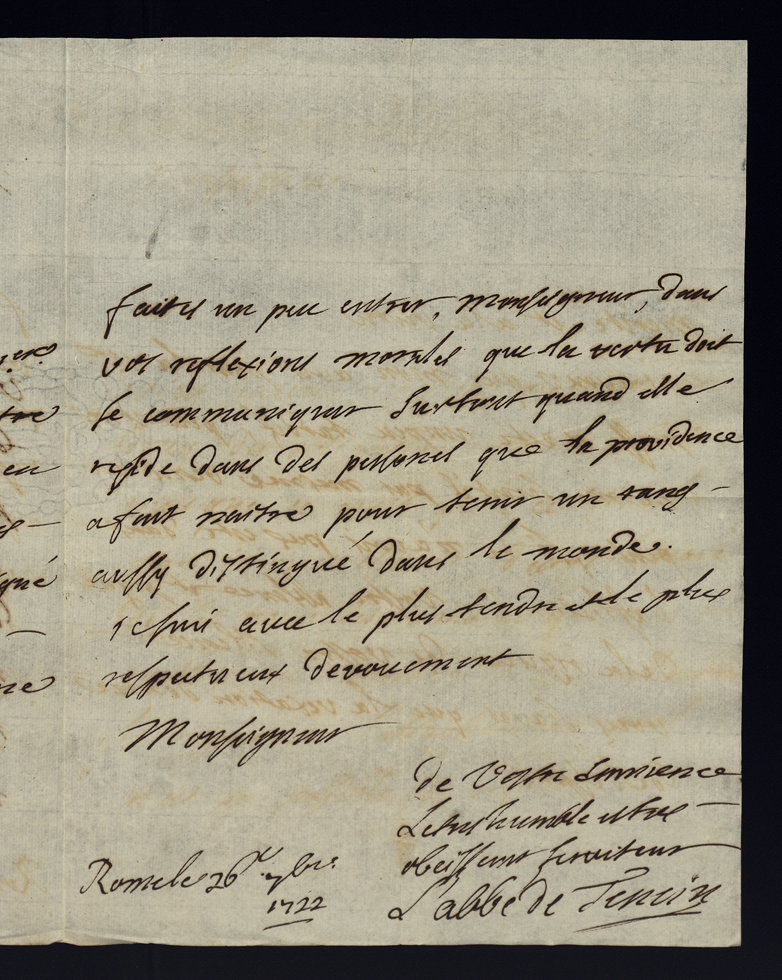 faites un peu entrer, Monseigneur, dans
vos reflexions morales que la vertu doit
se communiquer surtout quand elle
reside dans des persones que la providence
a fait naitre pour tenir un rang
aussy distingué dans le monde.
je suis avec le plus tendre et le plus
respectueux devouement
Monseigneur
de Vostre Eminence
Le tres humble et tres
obeissant serviteur
Rome le 26e 7bre
1722
L'abbé de Tencin
tre
en
gné